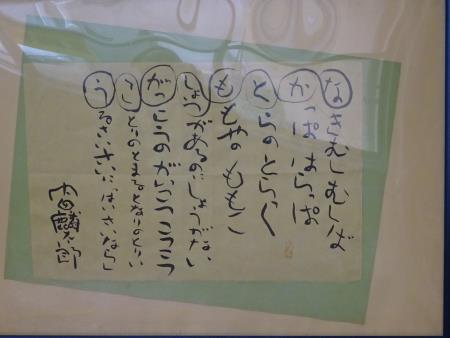 なきむしむしば
かっぱはらっぱ
とらのとらっく
ももやのももこ
しょうがあるのにしょうがない
がっこうのがいこつこつこつ
ことりのとまるとなりのとりい
うるさいさい
内田麟太郎